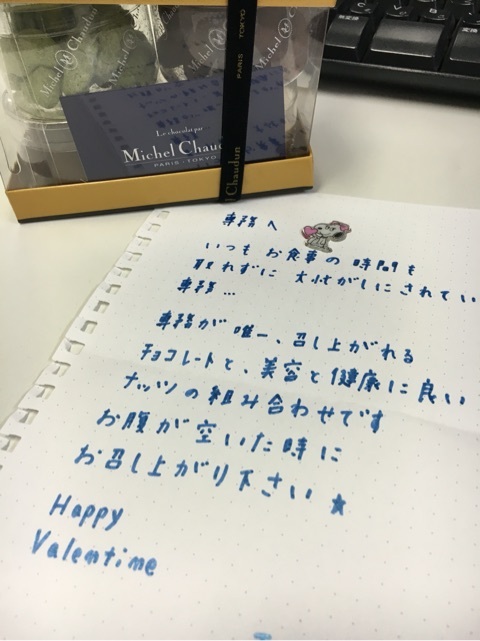 Michel Chaudun
Michel Chaudun
PARIS TOKYO
Le chocolat par
Michel Chaudun
PARIS·TOKYO
Chaudun
専務へ
いつもお食事の時間も
取れずに大忙がしにされてい
専務…
専務が唯一、召し上がれる
チョコレートと、美容と健康に良い
ナッツの組み合わせです
お腹が空いた時に
お召し上がり下さい★
Happy
Valentime